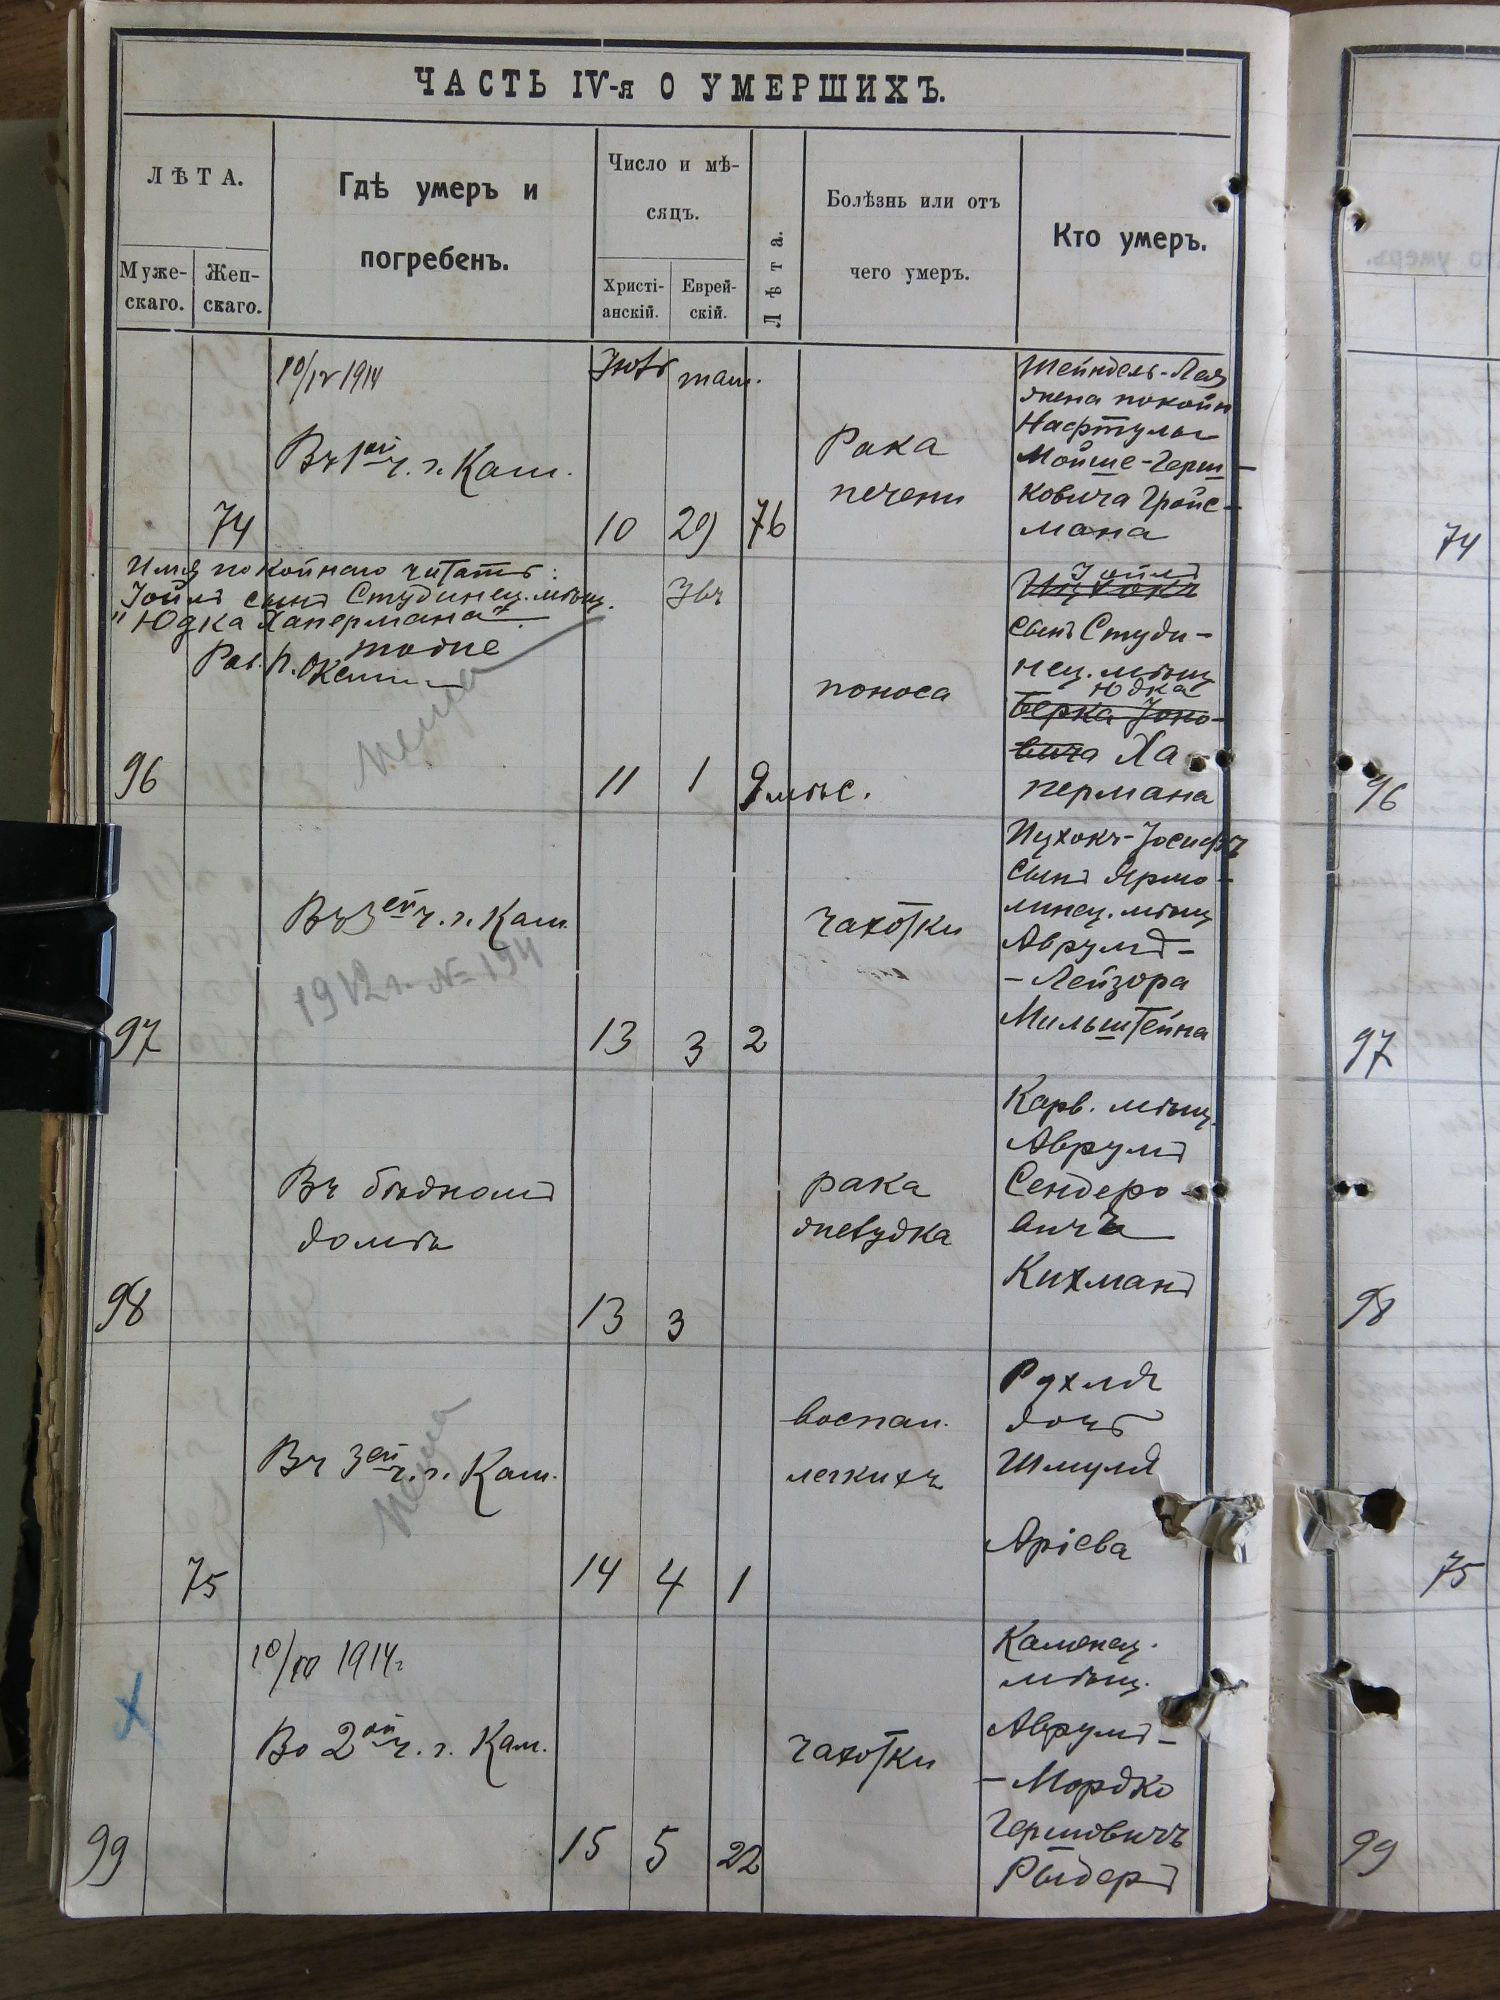 ЧАСТЬ IV-я О УМЕРШИХЪ.
ЛѢТА.
Муже-
скаго.
Жен-
скаго.
Гдѣ умеръ и
погребенъ.
Число и мѣ-
сяцъ.
Христі-
анскій.
Еврей-
скій.
Лѣта.
Болѣзнь или отъ
чего умеръ.
Кто умеръ.
10/IV 1914
Въ 1ой ч. г. Кам.
74
10
29
76
Рака
печени
Шейндель-Лея
жена покойн
Нафтулы
Мойше-Герш-
ковича Гройс-
мана
74
Имя покойнаго читать:
Іойлъ сынъ Студинец. мѣщ.
"Юдка Хапермана".
тоже
96
11
1
9 мѣс.
поноса
Іойлъ
Ицхокъ
сынъ Студи-
нец. мѣщ
Юдка
Берка Іоно-
вича Ха-
пермана
96
Въ 3ей ч. г. Кам.
1912 г. № 194
97
13
3
2
чахотки
Ицхокъ-Іосифъ
сынъ Ярмо-
линец. мѣщ
Аврумъ-
-Лейзора
Мильштейна
97
Въ бѣдномъ
домѣ
98
13
3
рака
желудка
Карв. мѣщ.
Аврумъ
Сендеро-
вичъ
Кихманъ
98
Въ 3ей ч. г. Кам.
75
14
4
1
воспал.
легкихъ
Рухля
дочь
Шмуля
Аріева
75
1914 г.
Во 2ой ч. г. Кам.
99
15
5
22
чахотки
Каменец.
мѣщ.
Аврумъ-
-Мордко
Гершовичъ
Рыдеръ
99